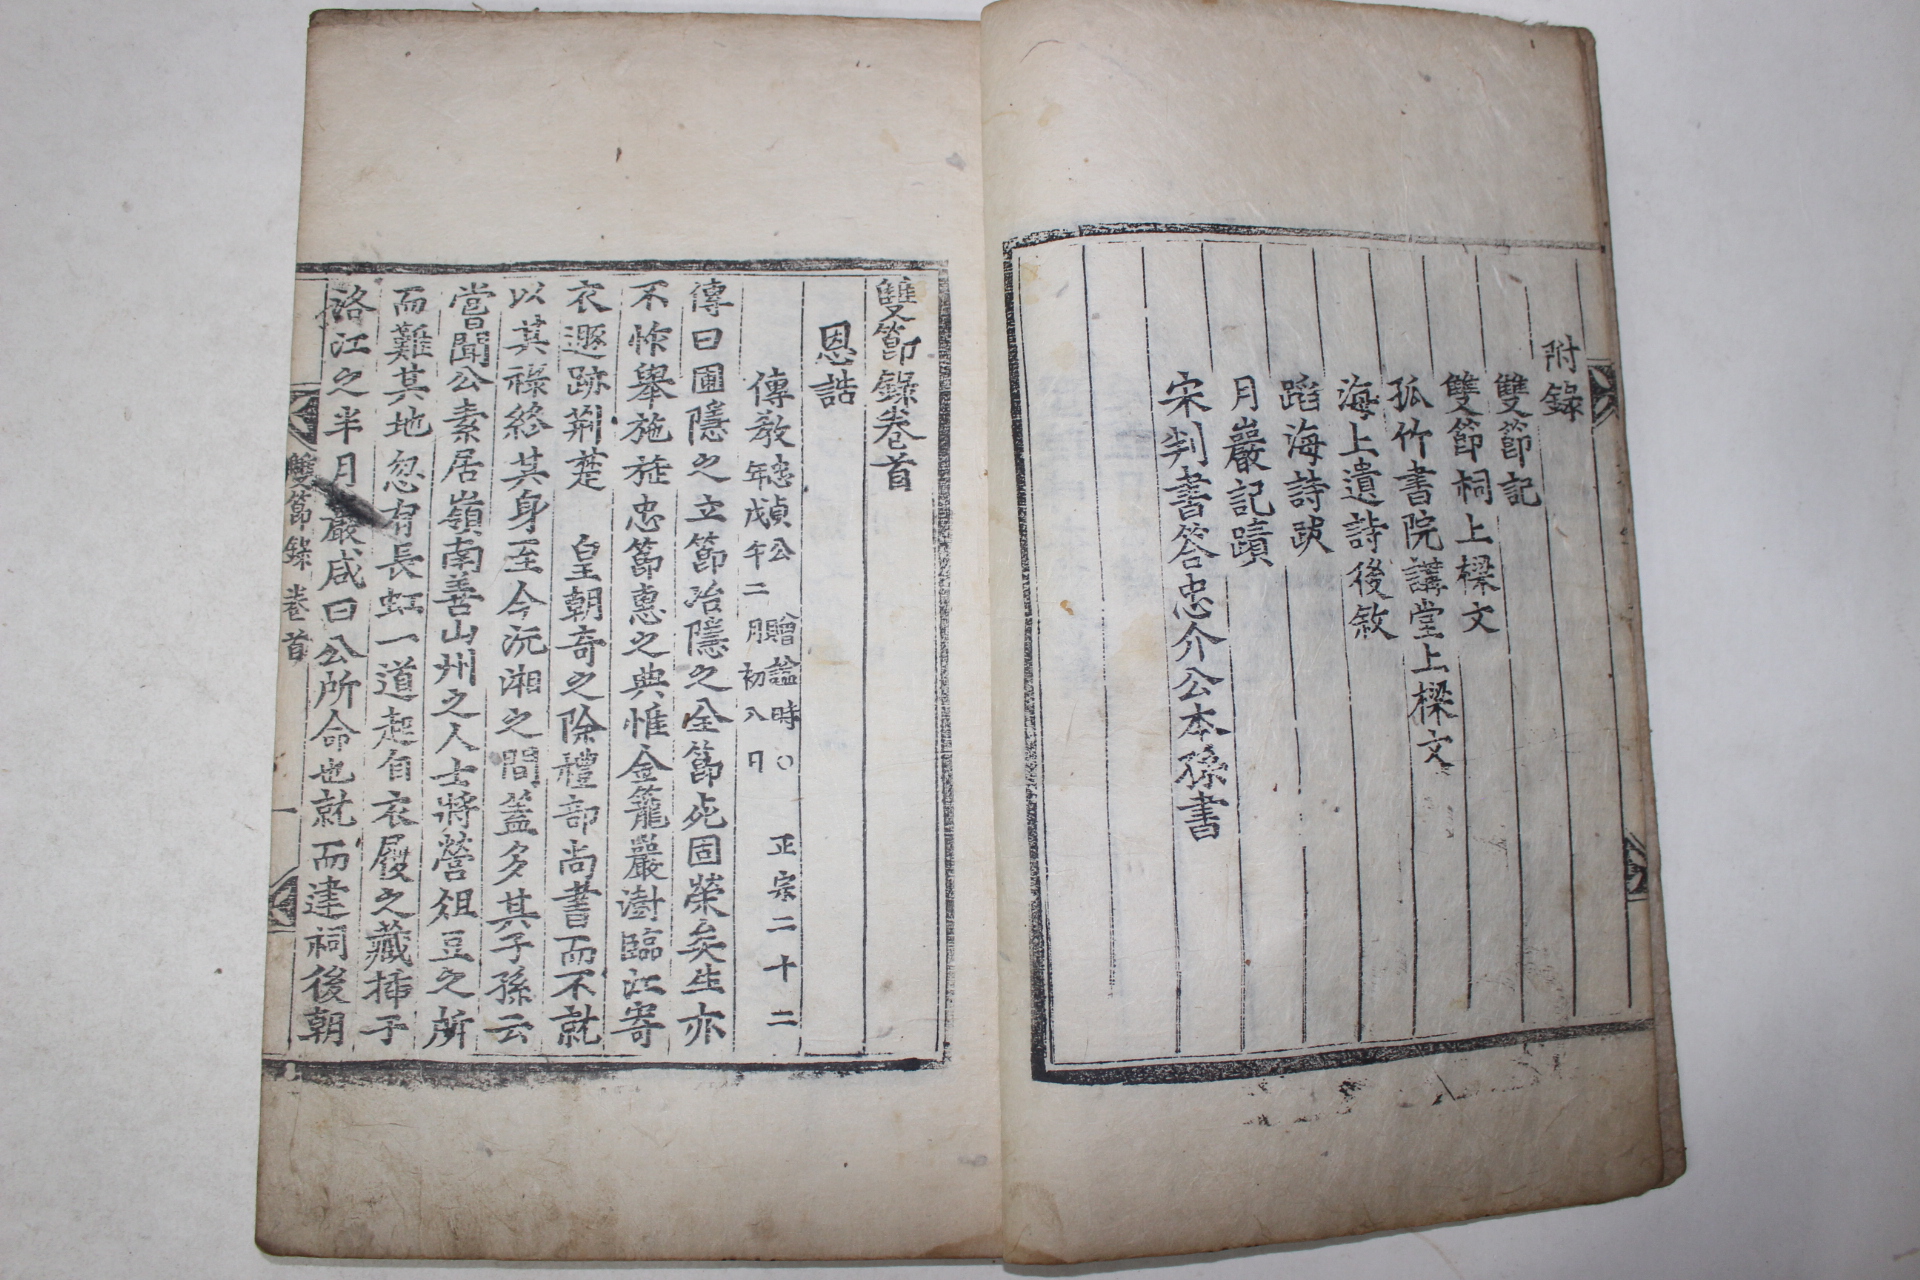 附錄
雙節記
雙節祠上樑文
孤竹書院講堂上樑文
海上遺詩後敘
蹈海詩跋
月巖記蹟
宋判書答忠介公本孫書
雙節錄卷首
恩誥
傳敎忠貞公贈諡時○正宗二十二
年戊午二月初八日
傳曰圃隱之立節冶隱之全節死固榮矣生亦
不怍舉施旌忠節惠之典惟金籠巖澍臨江寄
衣遯跡荊楚 皇朝奇之除禮部尚書而不就
以其祿終其身至今沅湘之間蓋多其子孫云
嘗聞公素居嶺南善山州之人士將營俎豆之所
而難其地忽有長虹一道起自衣履之藏揷于
洛江之半月巖咸曰公所命也就而建祠後朝
雙節錄 卷首 一